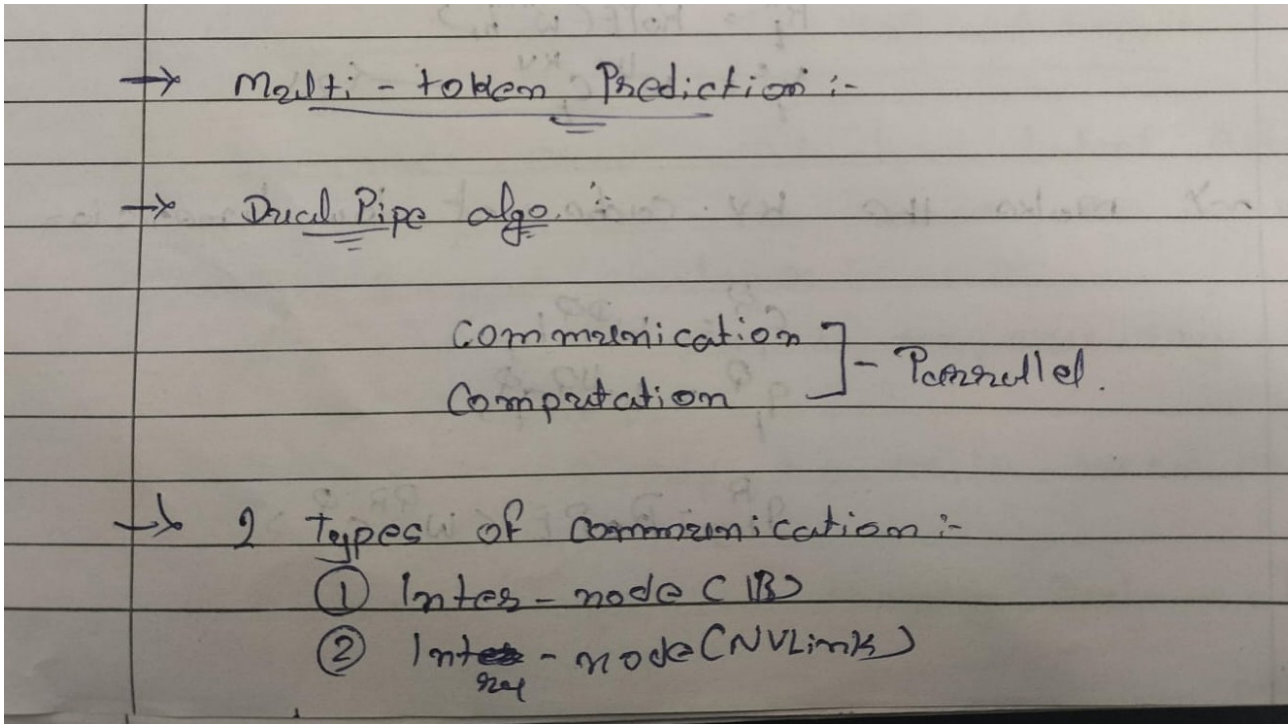 → Multi - token Prediction :-
→ Dual Pipe algo. :-
Communication
Computation ] - Parallel.
→ 2 types of communication :-
① Inter - node (IB)
② Intra - node (NVLink)